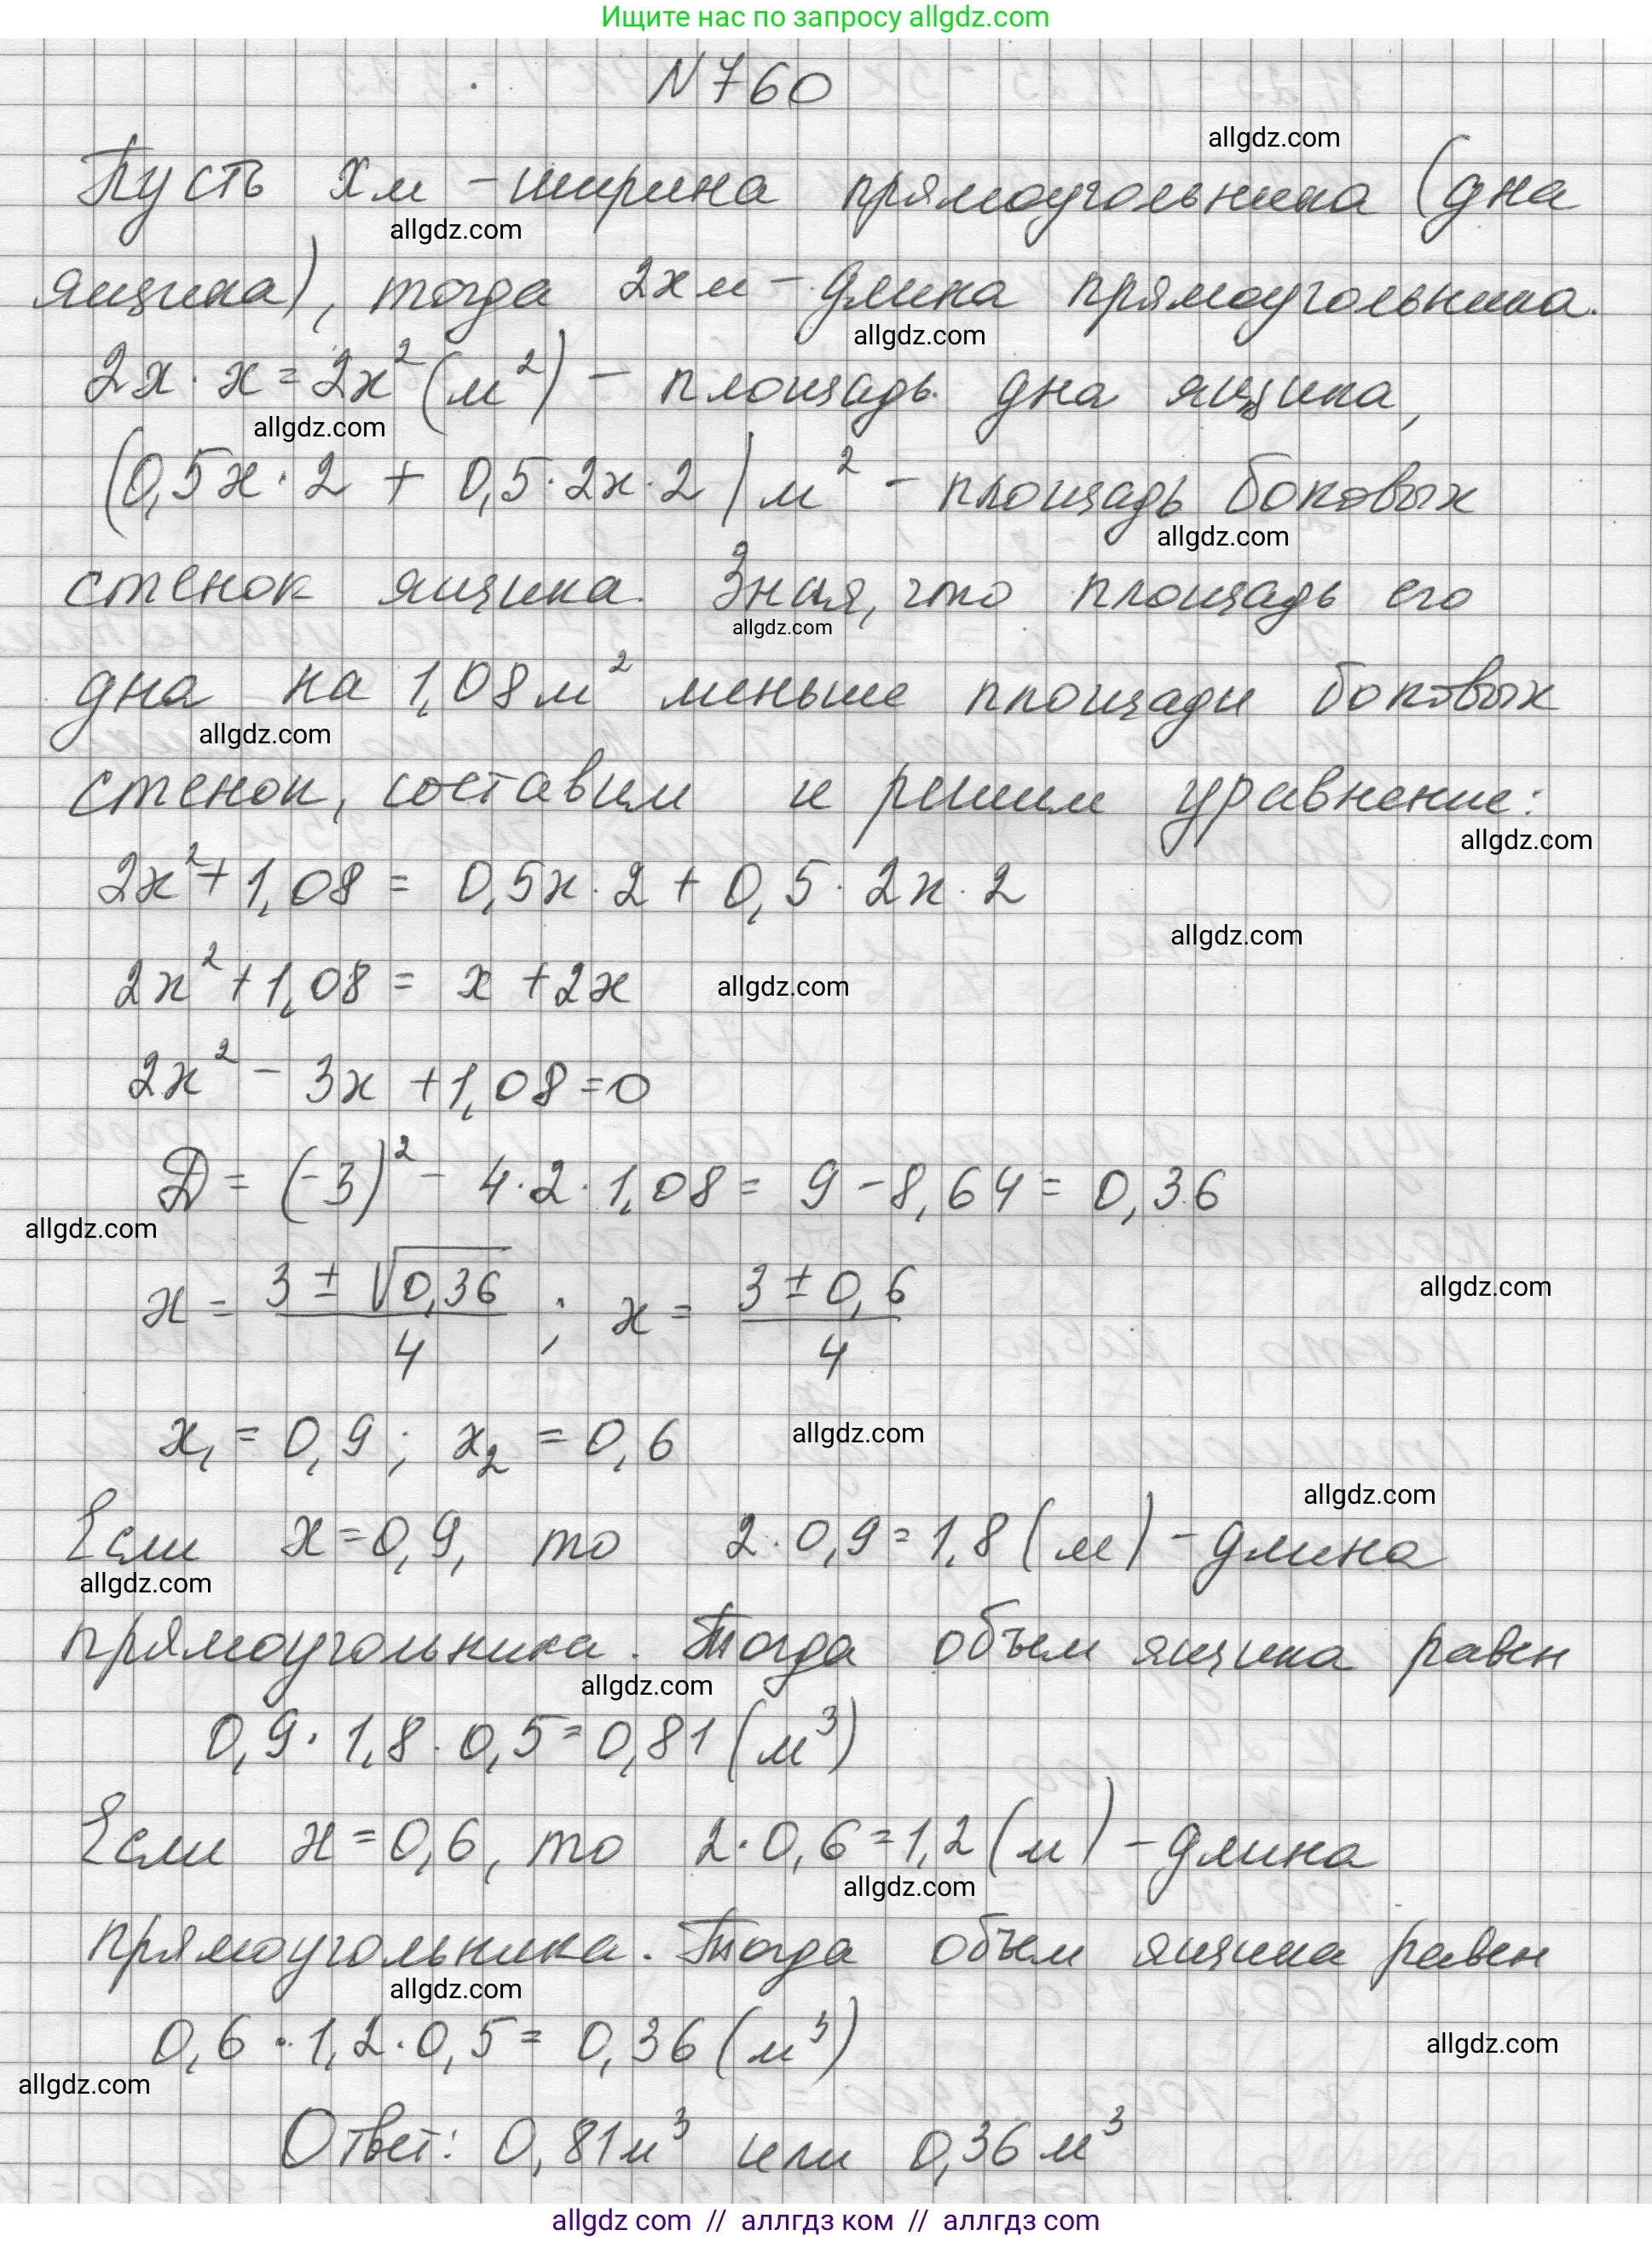 Ищите нас по запросу allgdz.com
N760
allgdz.com
Пусть xм - ширина прямоугольника (дна
allgdz.com
ящика), тогда 2xм - длина прямоугольника.
allgdz.com
2x · x = 2x² (м²) - площадь дна ящика,
allgdz.com
(0,5x · 2 + 0,5 · 2x · 2) м² - площадь боковых
allgdz.com
стенок ящика. Зная, что площадь его
allgdz.com
дна на 1,08 м² меньше площади боковых
allgdz.com
стенок, составим и решим уравнение:
allgdz.com
2x² + 1,08 = 0,5x · 2 + 0,5 · 2x · 2
allgdz.com
2x² + 1,08 = x + 2x allgdz.com
2x² - 3x + 1,08 = 0
D = (-3)² - 4 · 2 · 1,08 = 9 - 8,64 = 0,36
allgdz.com
x = (3 ± √0,36)/4 ; x = (3 ± 0,6)/4 allgdz.com
x₁ = 0,9 ; x₂ = 0,6 allgdz.com
allgdz.com
Если x = 0,9, то 2 · 0,9 = 1,8 (м) - длина
allgdz.com
прямоугольника. Тогда объем ящика равен
allgdz.com
0,9 · 1,8 · 0,5 = 0,81 (м³)
Если x = 0,6, то 2 · 0,6 = 1,2 (м) - длина
allgdz.com
прямоугольника. Тогда объем ящика равен
allgdz.com
0,6 · 1,2 · 0,5 = 0,36 (м³) allgdz.com
allgdz.com
Ответ: 0,81 м³ или 0,36 м³
allgdz com // аллгдз ком // аллгдз com